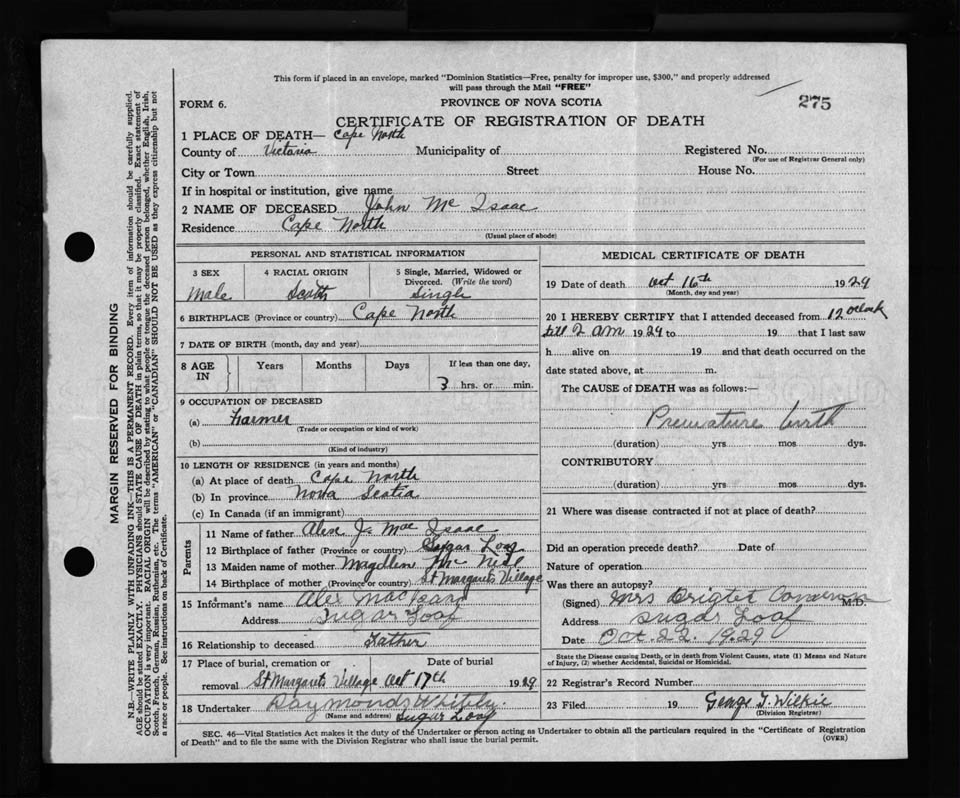 This form if placed in an envelope, marked "Dominion Statistics—Free, penalty for improper use, $300," and properly addressed
will pass through the Mail "FREE"
FORM 6.
PROVINCE OF NOVA SCOTIA
275
CERTIFICATE OF REGISTRATION OF DEATH
1 PLACE OF DEATH— Cape North
County of Victoria Municipality of Registered No.
(For use of Registrar General only)
City or Town Street House No.
If in hospital or institution, give name
2 NAME OF DECEASED John Mc Isaac
Residence Cape North
(Usual place of abode)
PERSONAL AND STATISTICAL INFORMATION
3 SEX
Male
4 RACIAL ORIGIN
Scotch
5 Single, Married, Widowed or
Divorced. (Write the word)
Single
6 BIRTHPLACE (Province or country) Cape North
7 DATE OF BIRTH (month, day and year)
8 AGE
IN
Years Months Days If less than one day,
3 hrs. or min.
9 OCCUPATION OF DECEASED
(a) Farmer
(Trade or occupation or kind of work)
(b)
(Kind of industry)
10 LENGTH OF RESIDENCE (in years and months)
(a) At place of death Cape North
(b) In province Nova Scotia
(c) In Canada (if an immigrant)
Parents
11 Name of father Alex J. Mac Isaac
12 Birthplace of father (Province or country) Sugar Loaf
13 Maiden name of mother Magdlien Mc Neil
14 Birthplace of mother (Province or country) St Margarets Village
15 Informant's name Alex Mac
Address Sugar Loaf
16 Relationship to deceased Father
17 Place of burial, cremation or Date of burial
removal St Margarets Village Oct 17th 1929
18 Undertaker Raymond Whitty.
(Name and address) Sugar Loaf
MEDICAL CERTIFICATE OF DEATH
19 Date of death Oct 16th 1929
(Month, day and year)
20 I HEREBY CERTIFY that I attended deceased from 12 oclock
till 2 am 1929 to 19 that I last saw
h alive on 19 and that death occurred on the
date stated above, at m.
The CAUSE of DEATH was as follows:—
Premature birth
(duration) yrs mos dys.
CONTRIBUTORY
(duration) yrs mos dys.
21 Where was disease contracted if not at place of death?
Did an operation precede death? Date of
Nature of operation
Was there an autopsy?
(Signed) Mrs M.D.
Address Sugar Loaf
Date Oct. 22. 1929
State the Disease causing Death, or in death from Violent Causes, state (1) Means and Nature
of Injury, (2) whether Accidental, Suicidal or Homicidal.
22 Registrar's Record Number
23 Filed 19 George T. Wilkie
(Division Registrar)
SEC. 46—Vital Statistics Act makes it the duty of the Undertaker or person acting as Undertaker to obtain all the particulars required in the "Certificate of Registration
of Death" and to file the same with the Division Registrar who shall issue the burial permit.
(OVER)
MARGIN RESERVED FOR BINDING
N.B.—WRITE PLAINLY WITH UNFADING INK—THIS IS A PERMANENT RECORD. Every item of information should be carefully supplied.
AGE should be stated EXACTLY. PHYSICIANS should STATE CAUSE OF DEATH in plain terms, so that it may be properly classified. Exact statement of
OCCUPATION is very important. RACIAL ORIGIN will be described by stating to what people or tongue the deceased person belonged, whether English, Irish,
Scotch, French, German, Russian, Ruthenian, etc. The terms "AMERICAN" or "CANADIAN" SHOULD NOT BE USED as they express citizenship but not
a race or people. See instructions on back of Certificate.